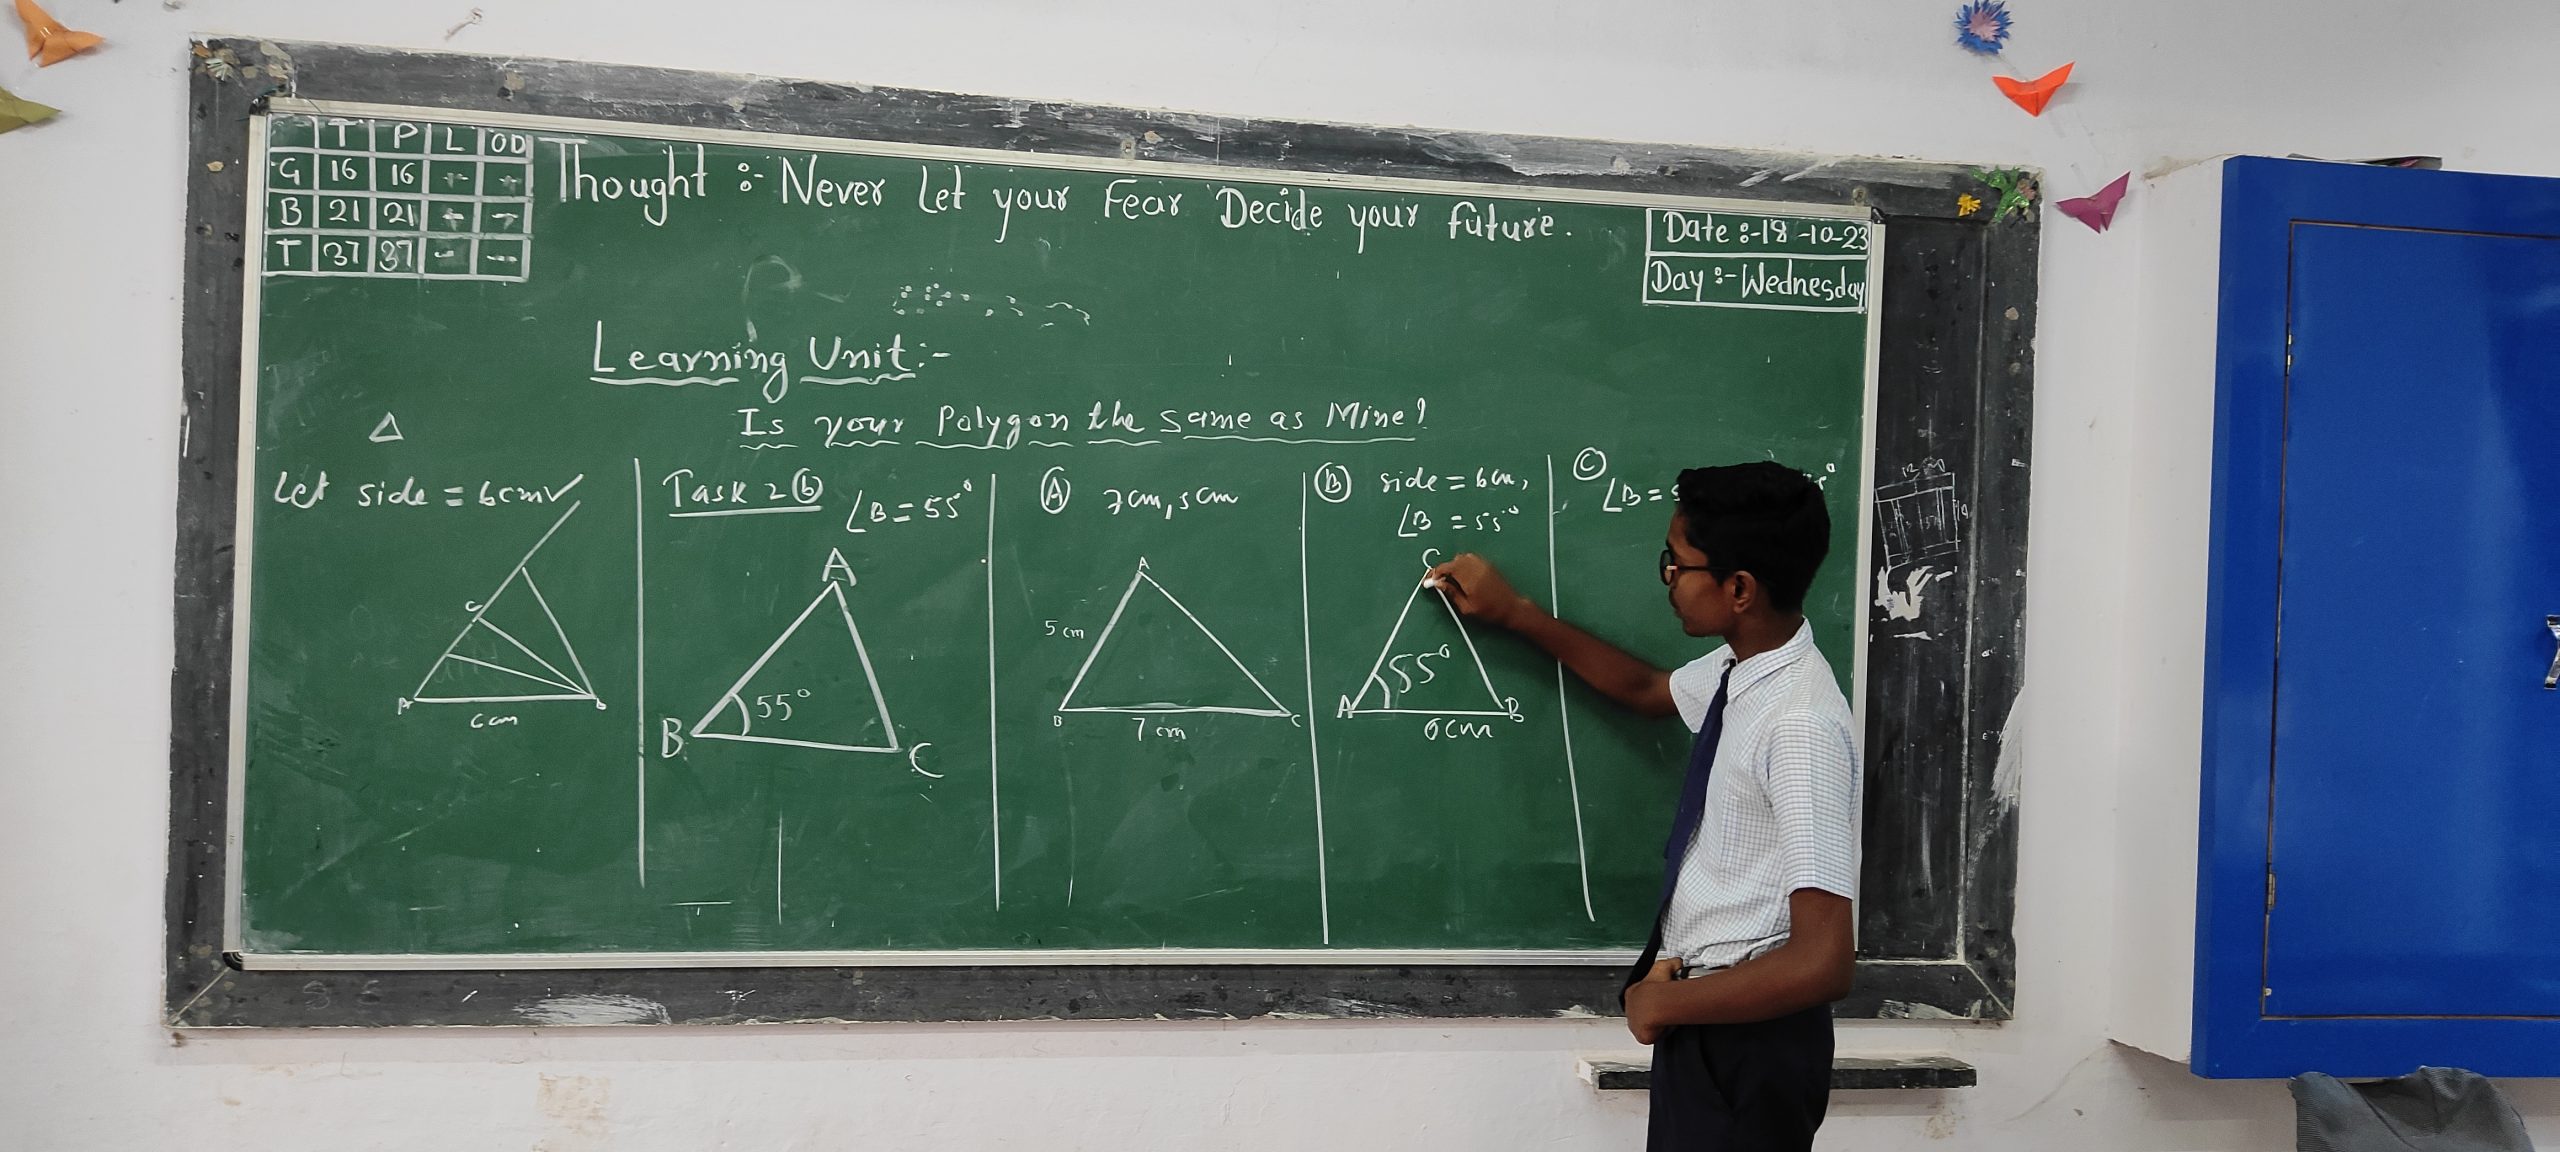 T P L OD
G 16 16 - -
B 21 21 - -
T 37 37 - --
Thought :- Never Let your Fear Decide your future.
Date :-18-10-23
Day :- Wednesday
Learning Unit:-
Is your Polygon the same as Mine?
Let side = 6cm
C
A
6cm
Task 2 (b)
∠B = 55°
A
55°
B
C
(A) 7cm, 5cm
A
5cm
B
C
7cm
(B) side = 6cm,
∠B = 55°
C
55°
A
B
6cm
(C)
∠B =